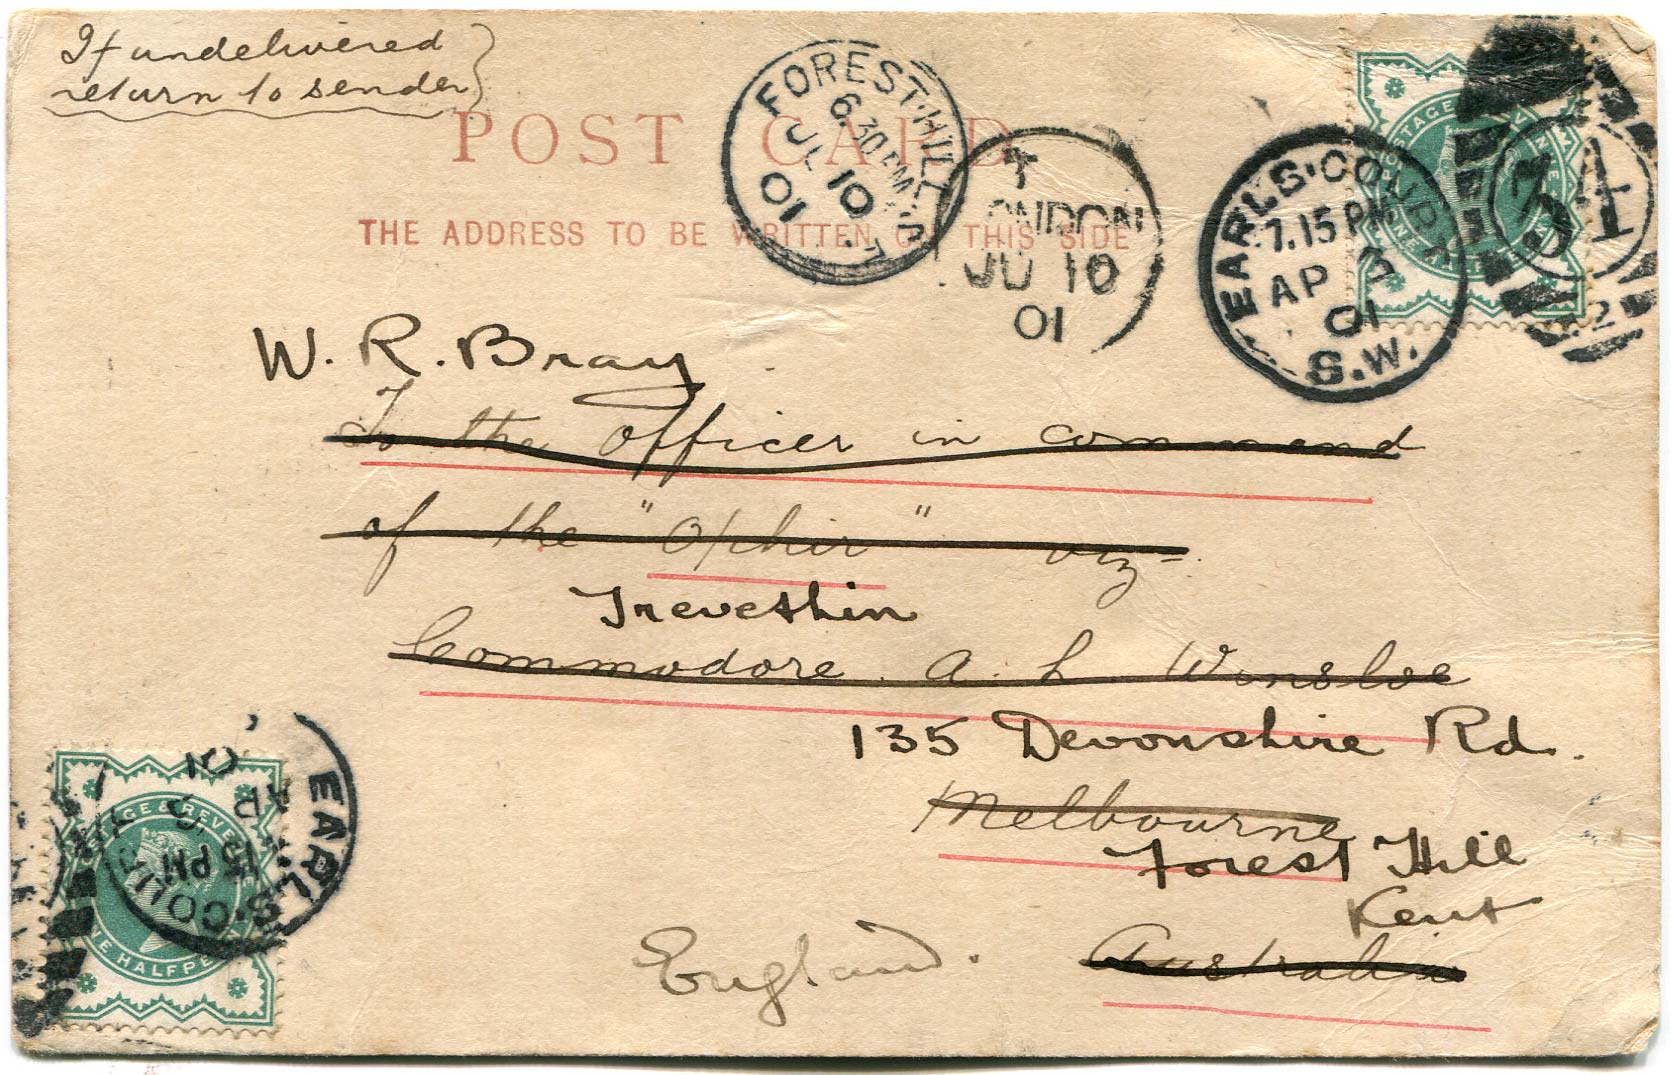 If undelivered
return to sender
POST CARD
THE ADDRESS TO BE WRITTEN ON THIS SIDE
FOREST·HILL
6.30PM
JL 10
01
LONDON
JU 10
01
EARLS·COURT
7.15 PM
AP 3
01
S.W.
34
2
POSTAGE & REVENUE
W. R. Bray
To the Officer in command
of the "Ophir" viz
Trevethin
Commodore A. L. Winsloe
135 Devonshire Rd.
Melbourne
Forest Hill
Kent
England.
Australia
POSTAGE & REVENUE
ONE HALFPENNY
EARLS·COURT
15 PM
AP
01